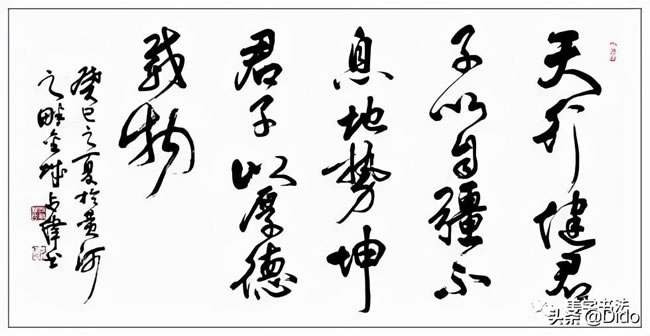 天行健君
子以自疆不
息地势坤
君子以厚德
载物
癸巳之夏於黄河
之畔金城占伟书
头条 @Dido